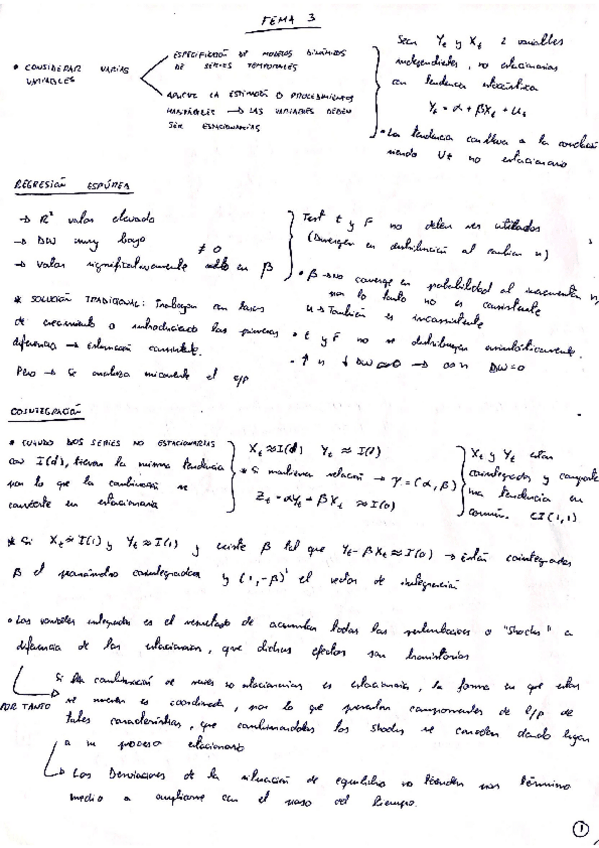 TEMA 3
• CONSIDERAR VARIAS VARIABLES
ESPECIFICACIÓN DE MODELOS DINÁMICOS DE SERIES TEMPORALES
APLICAR LA ESTIMACIÓN O PROCEDIMIENTOS HABITUALES → LAS VARIABLES DEBEN SER ESTACIONARIAS
Sean Yt y Xt 2 variables
independientes, no estacionarias
con tendencia estocástica
Yt = α + βXt + Ut
• La tendencia conlleva a la
siendo Ut no estacionario
REGRESIÓN ESPÚREA
→ R² valor elevado
→ DW muy bajo
→ Valor significativamente ≠ 0 en β
Test t y F no deben ser utilizados
(Divergen en distribución al cambiar n)
• β → no converge en probabilidad al incrementar n,
por lo tanto no es consistente
α → También es inconsistente
* SOLUCIÓN TRADICIONAL: Trabajar con tasas
de crecimiento o introduciendo las primeras
diferencias → Estimación consistente.
Pero → Se analiza únicamente el c/p
• t y F no se distribuyen asintóticamente.
• ↑ n ↓ DW ≈ 0 → ∞ n DW = 0
COINTEGRACIÓN
• CUANDO DOS SERIES NO ESTACIONARIAS
con I(d), tienen la misma tendencia
por lo que la combinación se
convierte en estacionaria
Xt ≈ I(d) Yt ≈ I(d)
* Si mantiene relación → γ = (α, β)
Zt = αYt + βXt ≈ I(0)
Xt y Yt están
cointegradas y comparten
una tendencia en
común. CI(1,1)
* Si Xt ≈ I(1) y Yt ≈ I(1) y existe β tal que Yt - βXt ≈ I(0) → Están cointegradas
β el parámetro cointegrador y (1, -β)' el vector de integración
• Las variables integradas es el resultado de acumular todas las perturbaciones o "Shocks" a
diferencia de las estacionarias, que dichos efectos son transitorios
POR TANTO
Si la combinación de series no estacionarias es estacionaria, la forma en que estas
se mueven es coordinada, por lo que presentan componentes de l/p de
tales características, que combinandolas los shocks se cancelan dando lugar
a un proceso estacionario
Las Desviaciones de la situación de equilibrio no tienden por término
medio a ampliarse con el paso del tiempo.
1